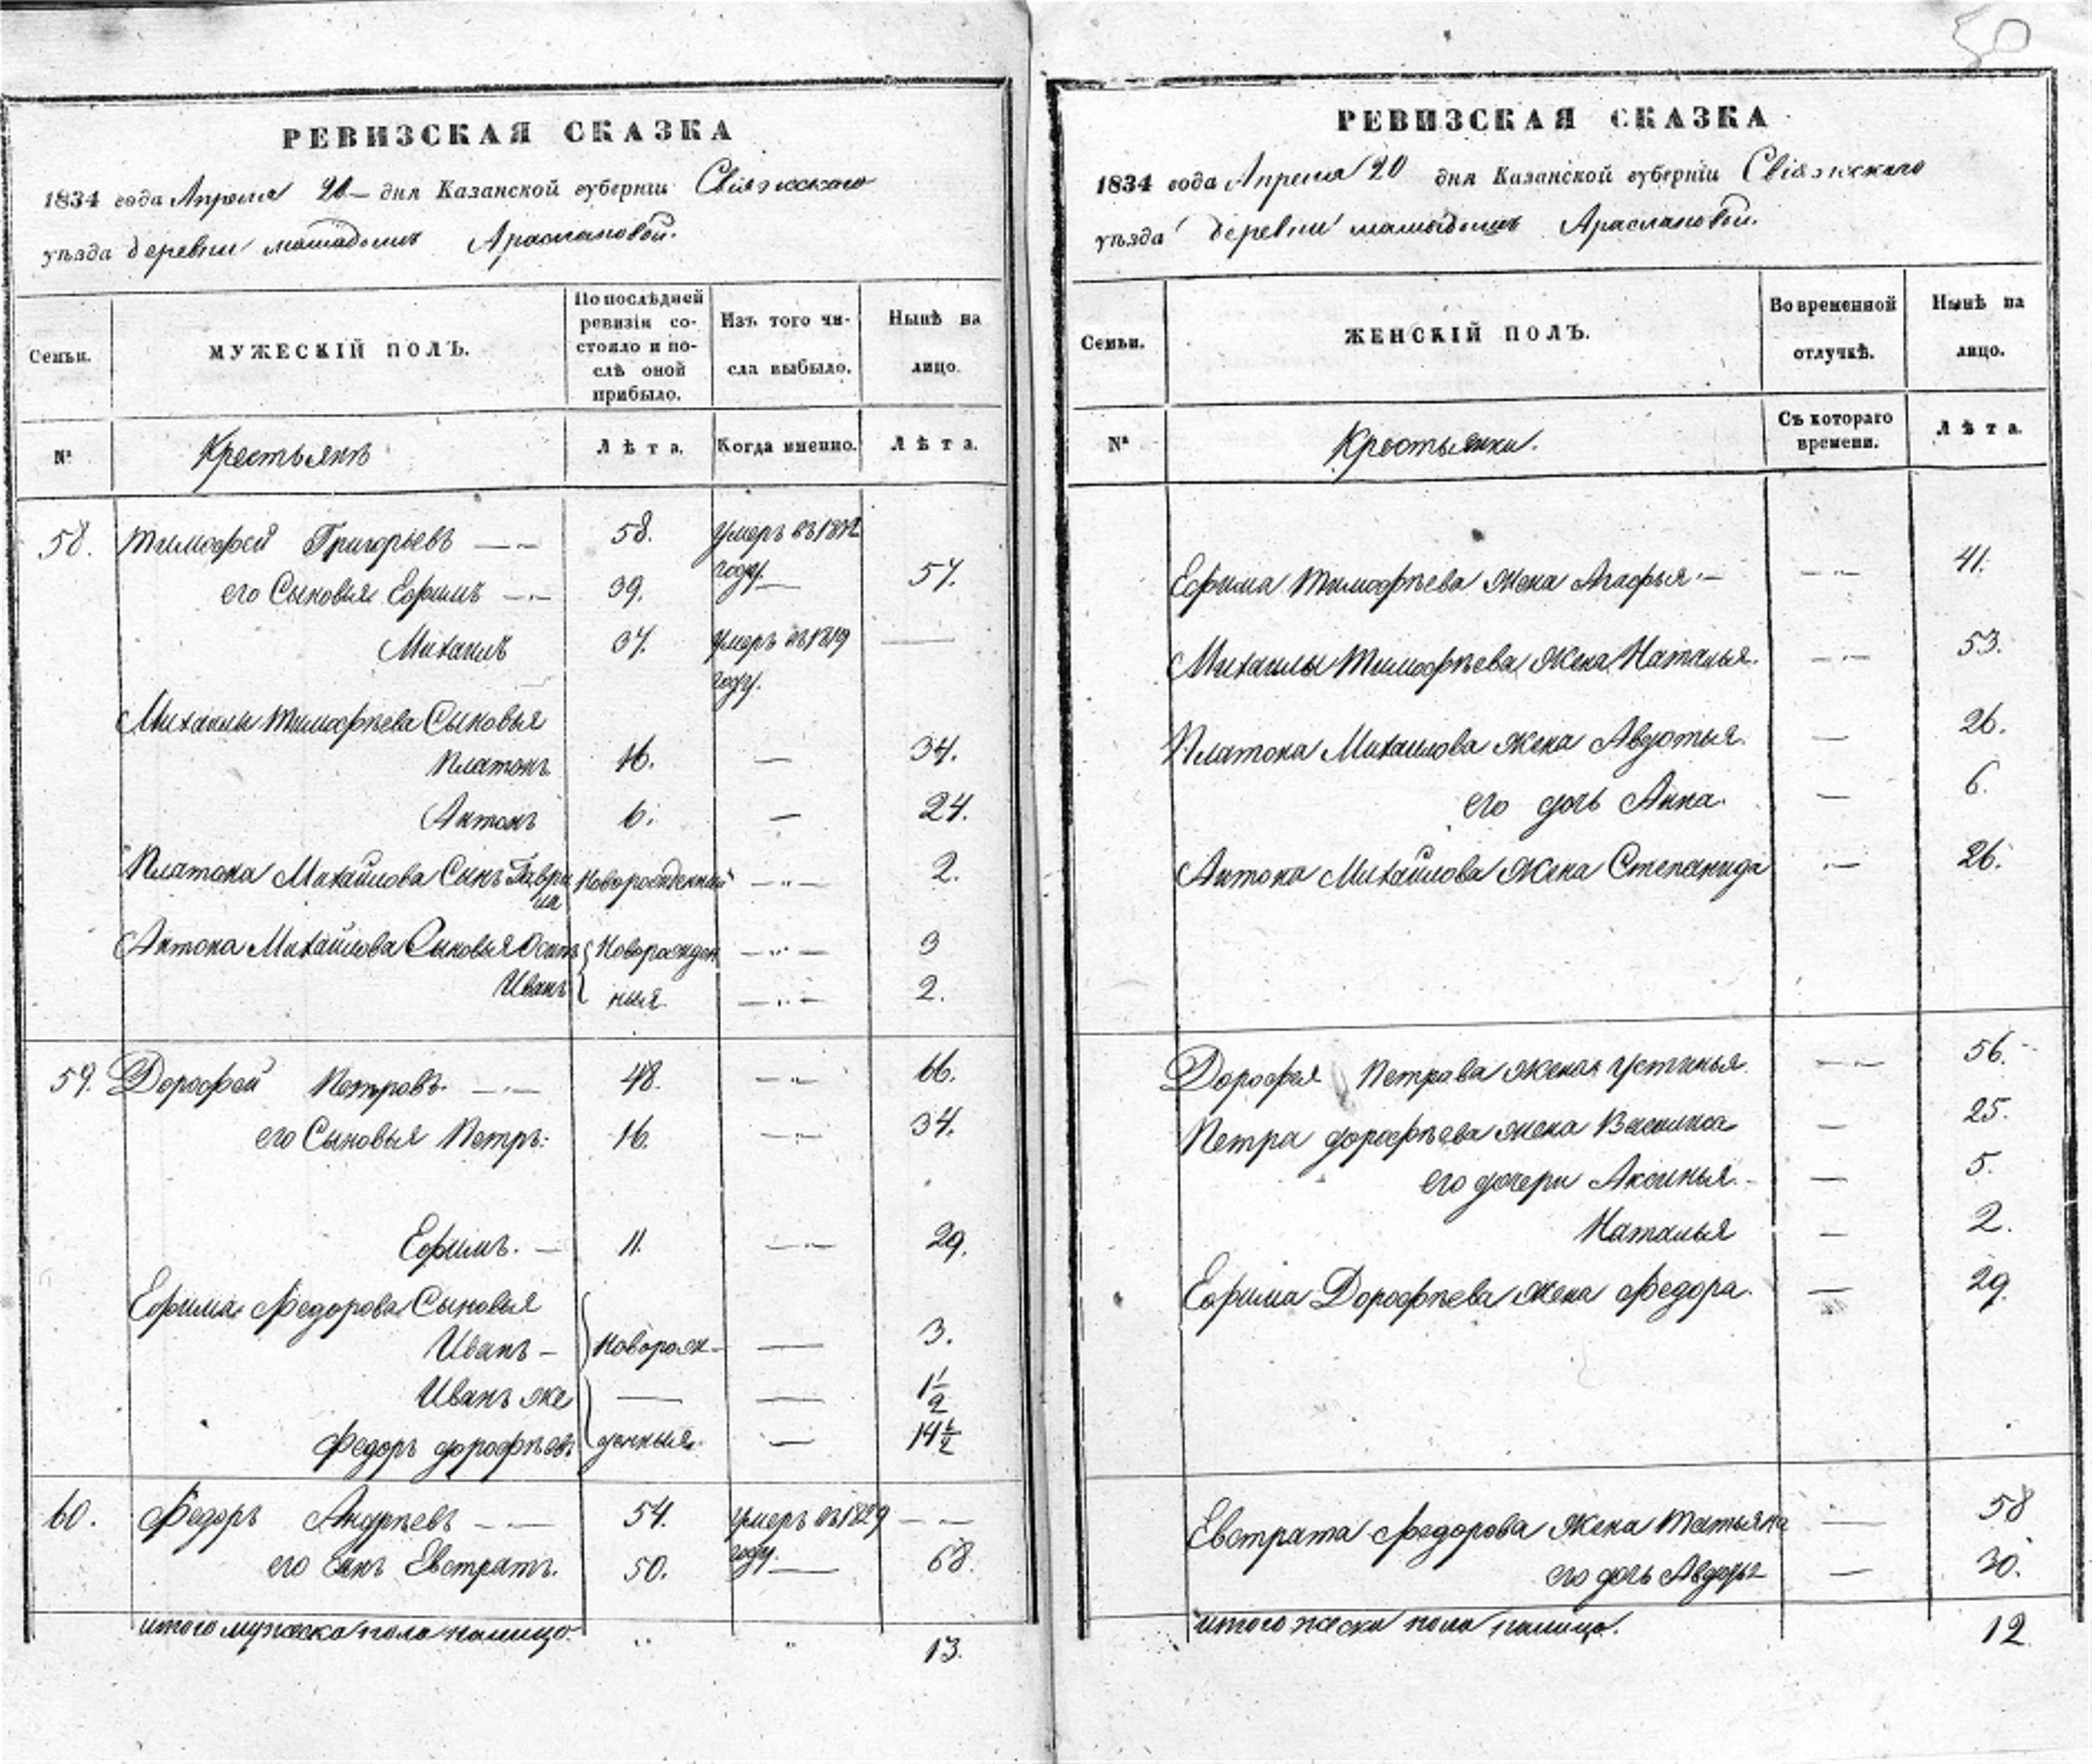 50
РЕВИЗСКАЯ СКАЗКА
1834 года Апреля 20 дня Казанской губернiи Свiяжскаго
уѣзда деревни Арaслановой.
Семьи. МУЖЕСКIЙ ПОЛЪ. По послѣдней ревизiи состояло и послѣ оной прибыло. Изъ того числа выбыло. Нынѣ на лицо.
№ Крестьянъ Лѣта. Когда именно. Лѣта.
58. Тимофей Григорьевъ 58. Умеръ въ 1812
году.
его Сыновья Ефимъ 39. 57.
Михаилъ 37. Умеръ въ 1819
году.
Михаилы Тимофѣева Сыновья
Платонъ 16. 34.
Антонъ 6. 24.
Платона Михайлова Сынъ Гаври Новорожденный 2.
ла
Антона Михайлова Сыновья Осипъ Новорожден 3
Иванъ ныя 2.
59. Дорофей Петровъ. 48. 66.
его Сыновья Петръ. 16. 34.
Ефимъ. 11. 29.
Ефима Федорова Сыновья
Иванъ Новорож- 3.
Иванъ же 1 1/2
Федоръ дорофѣевъ денныя. 14 1/2
60. Федоръ Андрѣевъ 54. Умеръ въ 1829
году.
его Сынъ Евстратъ. 50. 68.
итого мужеска пола налицо. 13.
РЕВИЗСКАЯ СКАЗКА
1834 года Апреля 20 дня Казанской губернiи Свiяжскаго
уѣзда деревни Арaслановой.
Семьи. ЖЕНСКIЙ ПОЛЪ. Во временной отлучкѣ. Нынѣ на лицо.
№ Крестьянки. Съ котораго времени. Лѣта.
Ефима Тимофѣева Жена Агафья 41.
Михаилы Тимофѣева Жена Наталья. 53.
Платона Михаилова жена Авдотья. 26.
его дочь Анна. 6.
Антона Михайлова Жена Степанида 26.
Дорофея Петрова жена Устинья. 56.
Петра дорофѣева жена Василиса 25.
его дочери Аксинья. 5.
Наталья 2.
Ефима Дорофѣева жена Федора. 29.
Евстрата Федорова жена Татьяна 58
его дочь 30.
итого женска пола налицо. 12